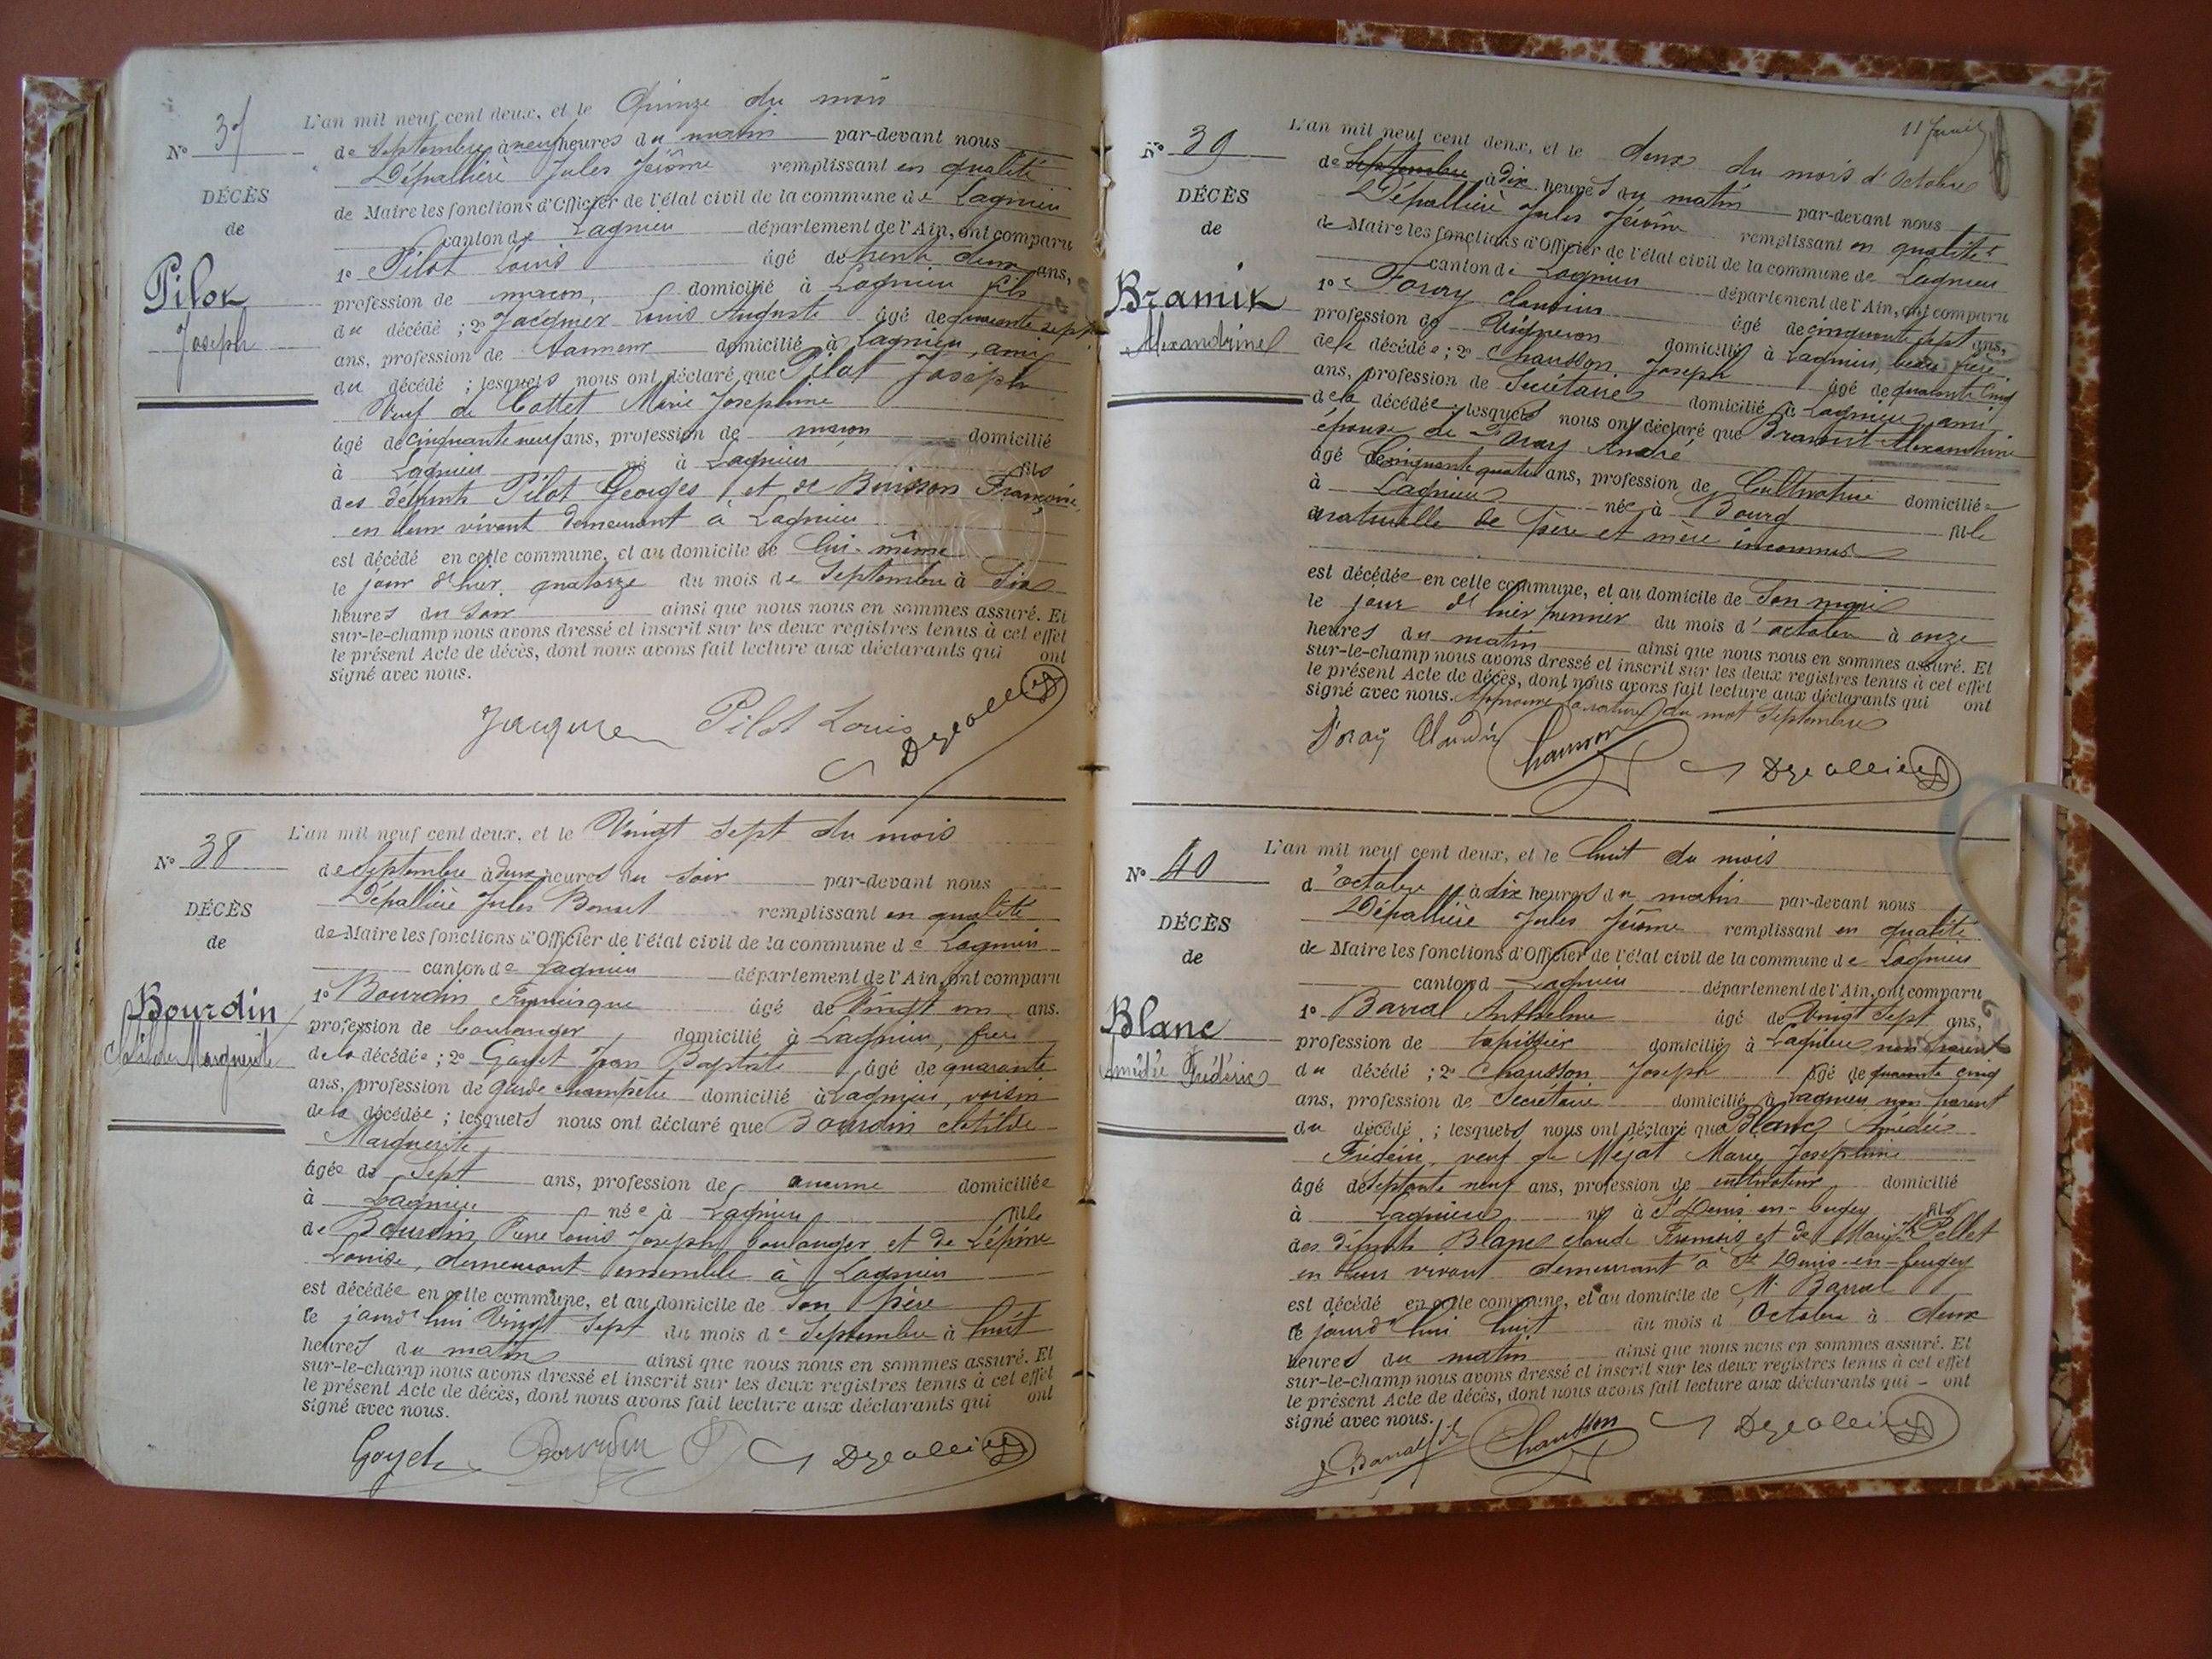 N° 37
DÉCÈS
de
Pilot
Joseph
L'an mil neuf cent deux, et le Quinze du mois
de Septembre à neuf heures du matin par-devant nous
Dépallière Jules Jérôme remplissant en qualité
de Maire les fonctions d'Officier de l'état civil de la commune de Lagnieu
canton de Lagnieu département de l'Ain, ont comparu
1° Pilot Louis âgé de trente deux ans,
profession de maçon, domicilié à Lagnieu fils
du décédé ; 2° Jacquier Louis Auguste âgé de quarante sept
ans, profession de domicilié à Lagnieu, ami
du décédé ; lesquels nous ont déclaré que Pilot Joseph
Veuf de Cottet Marie Josephine
âgé de cinquante neuf ans, profession de maçon domicilié
à Lagnieu né à Lagnieu fils
des défunts Pilot Georges et de Buisson Françoise,
en leur vivant demeurant à Lagnieu
est décédé en cette commune, et au domicile de lui-même
le jour d'hier quatorze du mois de Septembre à Six
heures du Soir ainsi que nous nous en sommes assuré. Et
sur-le-champ nous avons dressé et inscrit sur les deux registres tenus à cet effet
le présent Acte de décès, dont nous avons fait lecture aux déclarants qui ont
signé avec nous.
Pilot Louis
N° 38
DÉCÈS
de
Bourdin
Clotilde Marguerite
L'an mil neuf cent deux, et le Vingt Sept du mois
de Septembre à deux heures du Soir par-devant nous
Dépallière Jules remplissant en qualité
de Maire les fonctions d'Officier de l'état civil de la commune de Lagnieu
canton de Lagnieu département de l'Ain, ont comparu
1° Bourdin Francisque âgé de Vingt un ans.
profession de boulanger domicilié à Lagnieu, frère
de la décédée ; 2° Goyet Jean Baptiste âgé de quarante
ans, profession de garde champêtre domicilié à Lagnieu, voisin
de la décédée ; lesquels nous ont déclaré que Bourdin Clotilde
Marguerite
âgée de Sept ans, profession de aucune domiciliée
à Lagnieu née à Lagnieu fille
de Bourdin Pierre Louis Joseph boulanger et de Lépine
Louise, demeurant ensemble à Lagnieu
est décédée en cette commune, et au domicile de Son père
le jourd'hui Vingt Sept du mois de Septembre à huit
heures du matin ainsi que nous nous en sommes assuré. Et
sur-le-champ nous avons dressé et inscrit sur les deux registres tenus à cet effet
le présent Acte de décès, dont nous avons fait lecture aux déclarants qui ont
signé avec nous.
Goyet Bourdin
N° 39
DÉCÈS
de
Bramit
Alexandrine
L'an mil neuf cent deux, et le deux du mois d'Octobre
de Septembre à dix heures du matin par-devant nous
Dépallière Jules Jérôme remplissant en qualité
de Maire les fonctions d'Officier de l'état civil de la commune de Lagnieu
canton de Lagnieu département de l'Ain, ont comparu
1° Foray Claudius âgé de cinquante sept ans,
profession de Vigneron domicilié à Lagnieu, beau frère
de la décédée ; 2° Chausson Joseph âgé de quarante cinq
ans, profession de Secrétaire domicilié à Lagnieu, ami
de la décédée lesquels nous ont déclaré que Bramit Alexandrine
épouse de Foray André
âgé de cinquante quatre ans, profession de Cultivatrice domiciliée
à Lagnieu née à Bourg fille
naturelle de père et mère inconnus
est décédée en cette commune, et au domicile de Son mari
le jour d'hier premier du mois d'octobre à onze
heures du matin ainsi que nous nous en sommes assuré. Et
sur-le-champ nous avons dressé et inscrit sur les deux registres tenus à cet effet
le présent Acte de décès, dont nous avons fait lecture aux déclarants qui ont
signé avec nous. Approuvé la rature du mot Septembre
Foray Claudius Chausson
N° 40
DÉCÈS
de
Blanc
Amédée Frédéric
L'an mil neuf cent deux, et le huit du mois
d'octobre à dix heures du matin par-devant nous
Dépallière Jules Jérôme remplissant en qualité
de Maire les fonctions d'Officier de l'état civil de la commune de Lagnieu
canton d Lagnieu département de l'Ain, ont comparu
1° Barral Anthelme âgé de Vingt Sept ans,
profession de tapissier domicilié à Lagnieu non parent
du décédé ; 2° Chausson Joseph âgé de quarante cinq
ans, profession de Secrétaire domicilié à Lagnieu non parent
du décédé ; lesquels nous ont déclaré que Blanc Amédée
Frédéric, veuf de Méjat Marie Joséphine
âgé de Septante neuf ans, profession de cultivateur domicilié
à Lagnieu né à St Denis-en-bugey fils
des défunts Blanc Claude François et de Pellet
en leur vivant demeurant à St Denis-en-bugey
est décédé en cette commune, et au domicile de Mr Barral
le jourd'hui huit du mois d'Octobre à deux
heures du matin ainsi que nous nous en sommes assuré. Et
sur-le-champ nous avons dressé et inscrit sur les deux registres tenus à cet effet
le présent Acte de décès, dont nous avons fait lecture aux déclarants qui ont
signé avec nous.
Barral Chausson